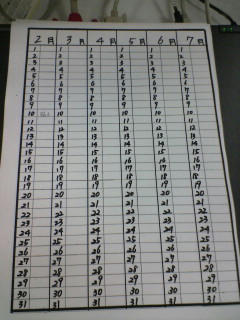 2月 3月 4月 5月 6月 7月
1 1 1 1 1 1
2 2 2 2 2 2
3 3 3 3 3 3
4 4 4 4 4 4
5 5 5 5 5 5
6 6 6 6 6 6
7 7 7 7 7 7
8 8 8 8 8 8
9 9 9 9 9 9
10 10 10 10 10 10
11 11 11 11 11 11
12 12 12 12 12 12
13 13 13 13 13 13
14 14 14 14 14 14
15 15 15 15 15 15
16 16 16 16 16 16
17 17 17 17 17 17
18 18 18 18 18 18
19 19 19 19 19 19
20 20 20 20 20 20
21 21 21 21 21 21
22 22 22 22 22 22
23 23 23 23 23 23
24 24 24 24 24 24
25 25 25 25 25 25
26 26 26 26 26 26
27 27 27 27 27 27
28 28 28 28 28 28
29 29 29 29 29 29
30 30 30 30 30 30
31 31 31 31 31 31